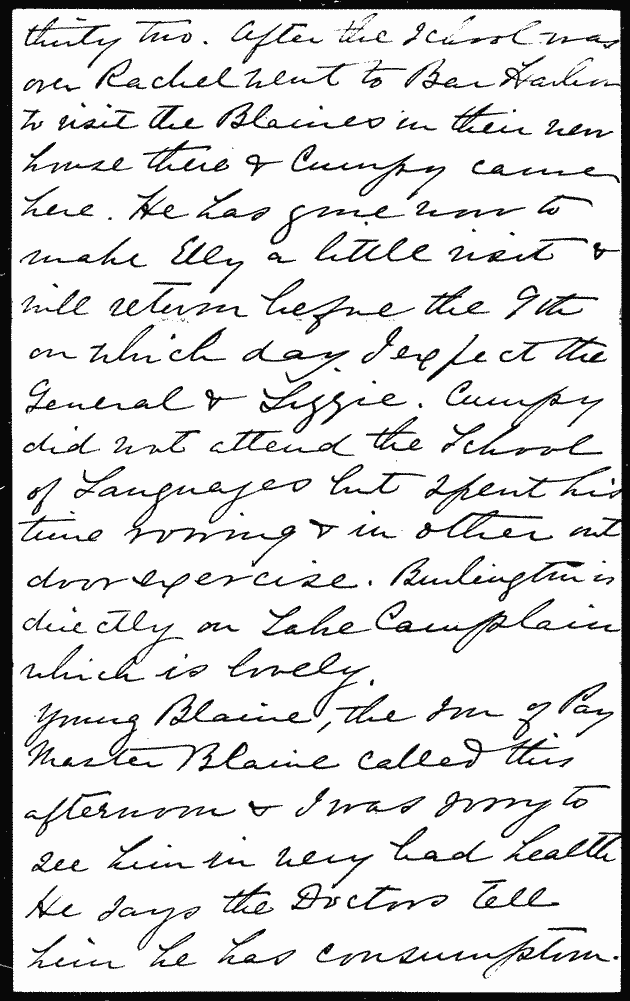 thirty two. After the School was
over Rachel went to Bar Harbor
to visit the Blaines in their new
house there & Cumpy came
here. He has gone now to
make Elly a little visit &
will return before the 9th
on which day I expect the
General & Lizzie. Cumpy
did not attend the School
of Languages but spent his
time rowing & in other out
door exercise. Burlington is
directly on Lake Camplain
which is lovely.
Young Blaine, the son of Pay
Master Blaine called this
afternoon & I was sorry to
see him in very bad health
He says the Doctors tell
him he has consumption.